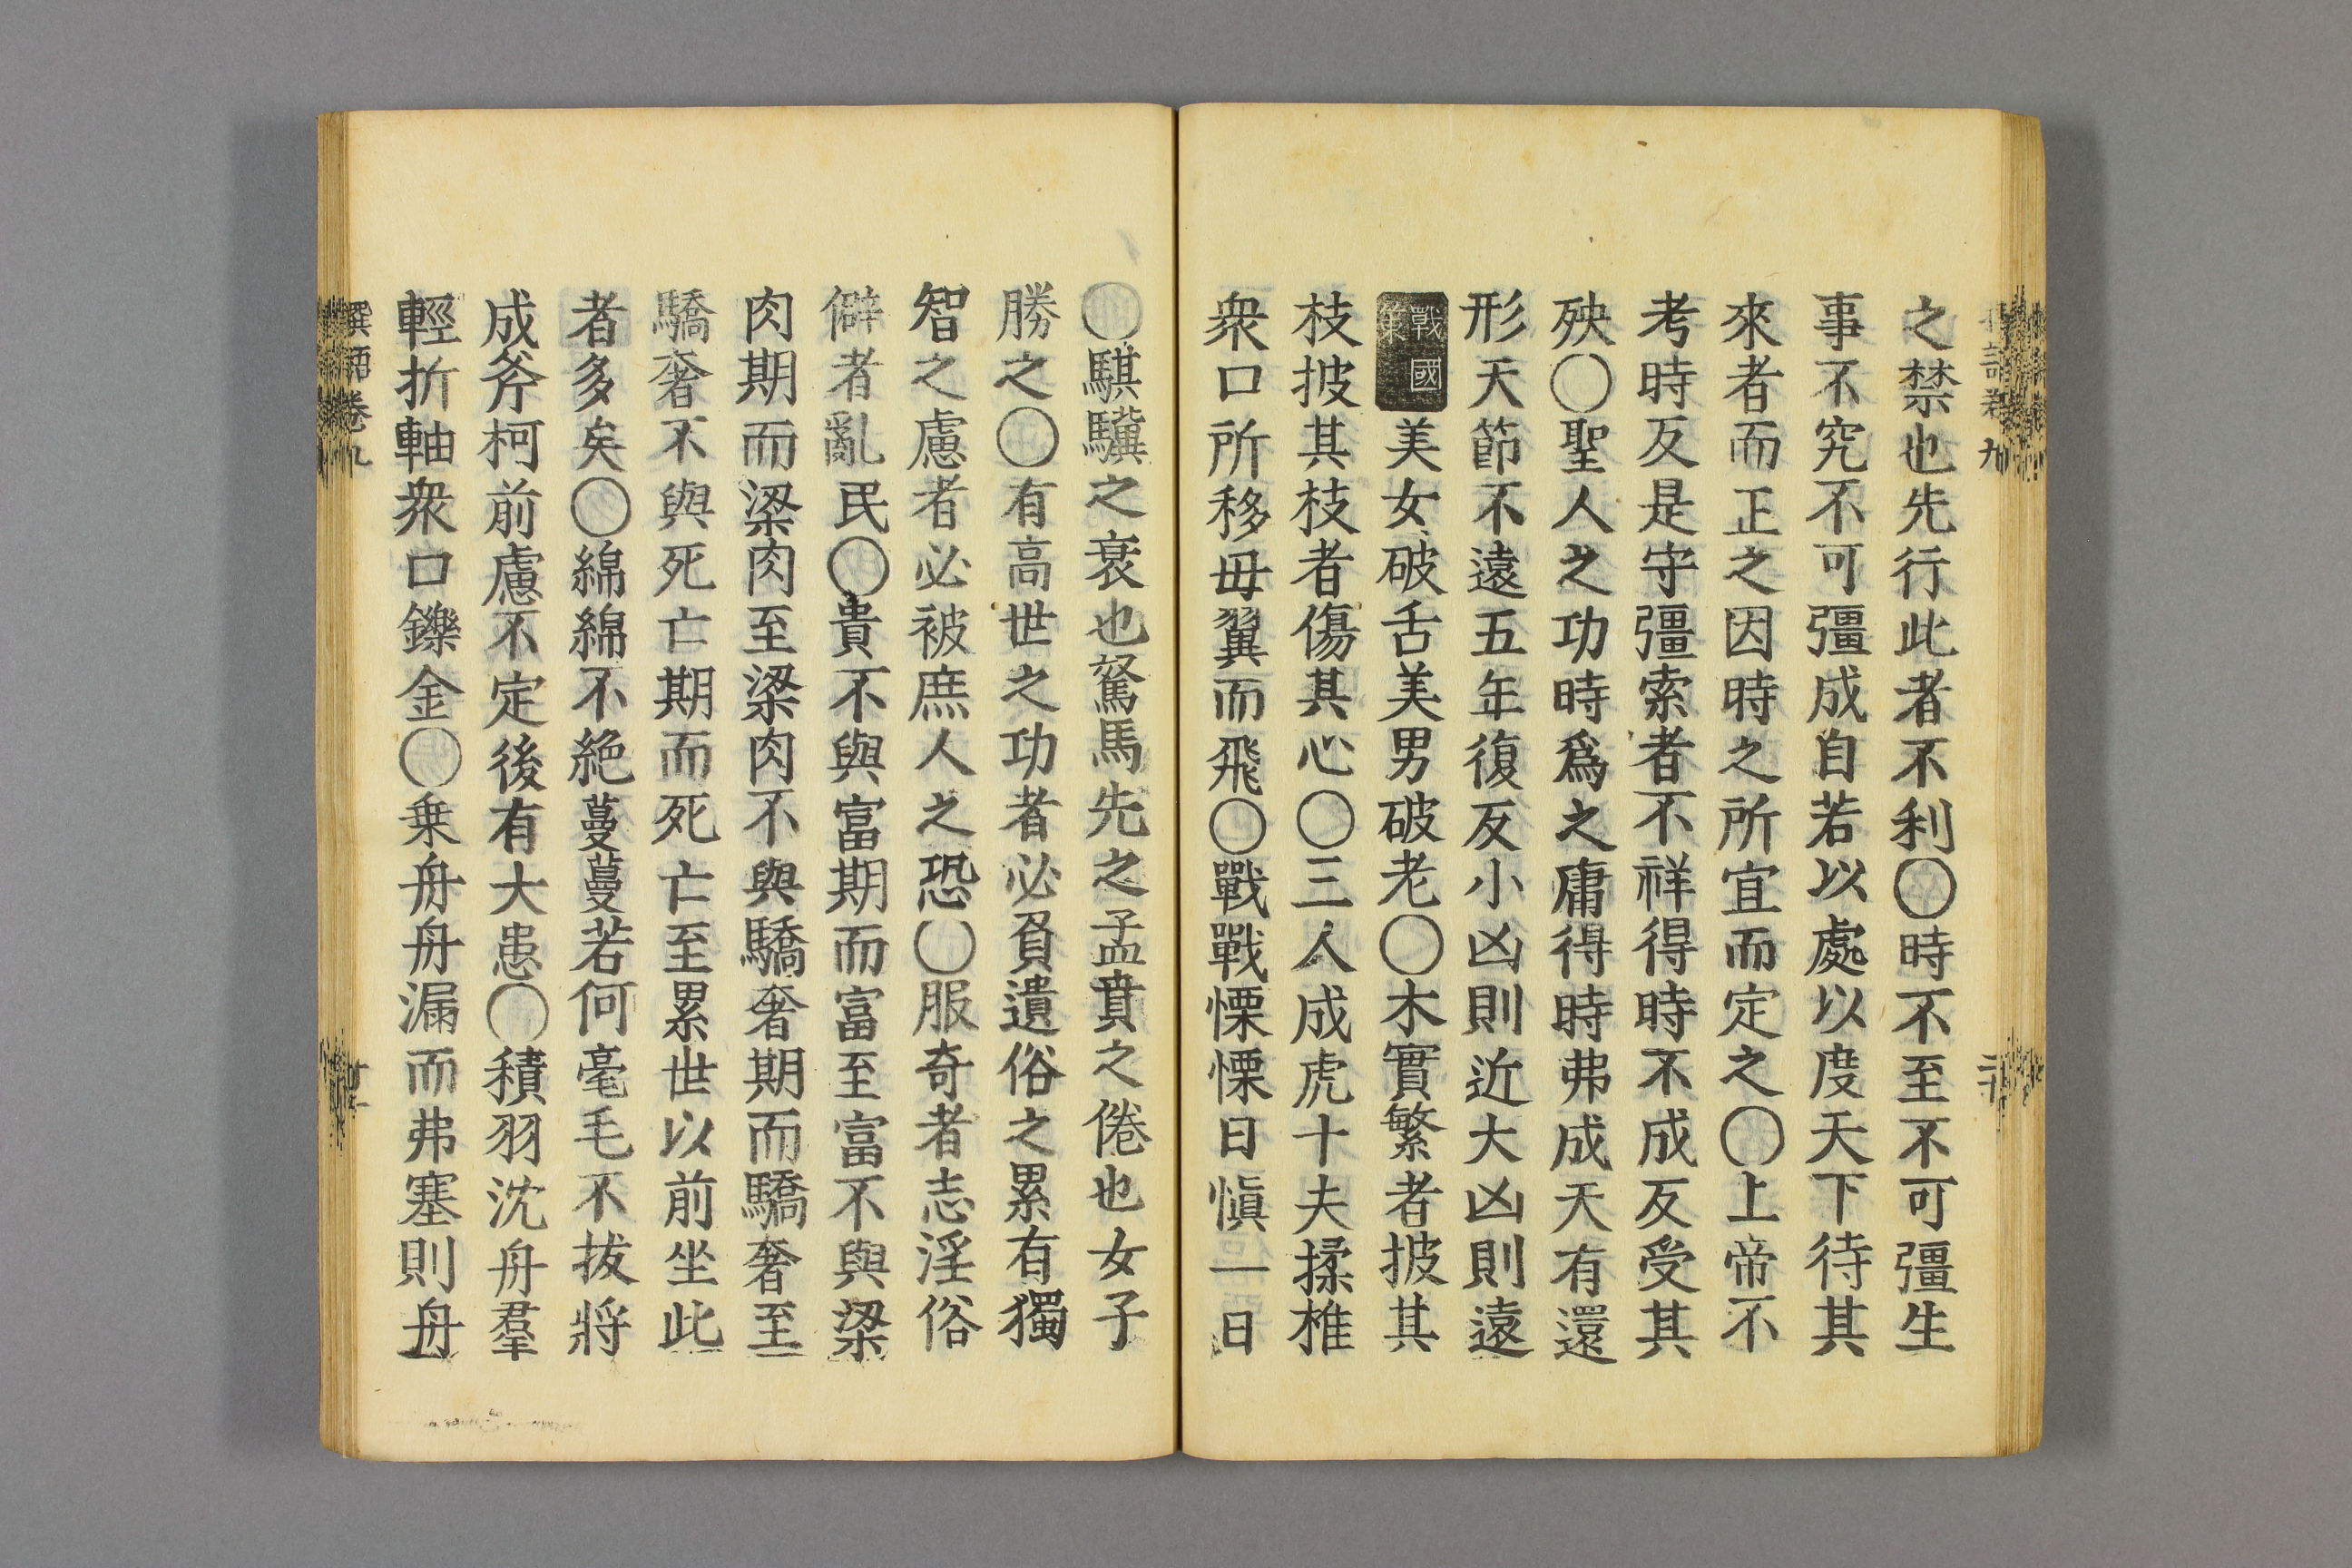 之禁也先行此者不利〇時不至不可彊生
事不究不可彊成自若以處以度天下待其
來者而正之因時之所宜而定之〇上帝不
考時反是守彊索者不祥得時不成反受其
殃〇聖人之功時爲之庸得時弗成天有還
形天節不遠五年復反小凶則近大凶則遠
戰國策美女破舌美男破老〇木實繁者披其
枝披其枝者傷其心〇三人成虎十夫揉椎
衆口所移毋翼而飛〇戰戰慄慄日愼一日
〇騏驥之衰也駑馬先之孟賁之倦也女子
勝之〇有高世之功者必負遺俗之累有獨
智之慮者必被庶人之恐〇服奇者志淫俗
僻者亂民〇貴不與富期而富至富不與梁
肉期而梁肉至梁肉不與驕奢期而驕奢至
驕奢不與死亡期而死亡至累世以前坐此
者多矣〇綿綿不絶蔓蔓若何毫毛不拔將
成斧柯前慮不定後有大患〇積羽沈舟羣
輕折軸衆口鑠金〇乗舟舟漏而弗塞則舟
卷九